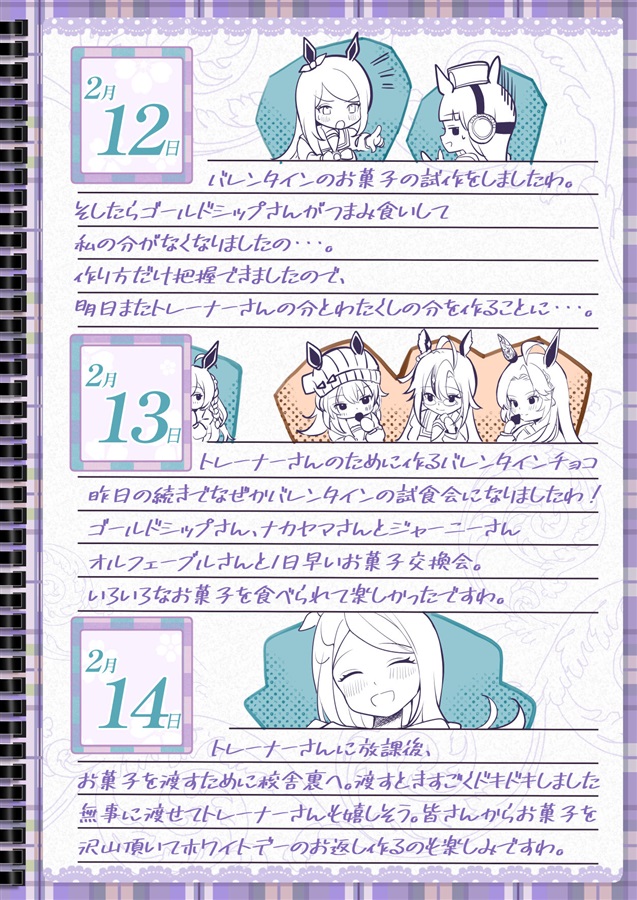 2月
12日
バレンタインのお菓子の試作をしましたわ。
そしたらゴールドシップさんがつまみ食いして
私の分がなくなりましたの・・・。
作り方だけ把握できましたので、
明日またトレーナーさんの分とわたくしの分を作ることに・・・。
2月
13日
トレーナーさんのために作るバレンタインチョコ
昨日の続きでなぜかバレンタインの試食会になりましたわ!
ゴールドシップさん、ナカヤマさんとジャーニーさん
オルフェーブルさんと1日早いお菓子交換会。
いろいろなお菓子を食べられて楽しかったですわ。
2月
14日
トレーナーさんに放課後、
お菓子を渡すために校舎裏へ。渡すときすごくドキドキしました
無事に渡せてトレーナーさんも嬉しそう。皆さんからお菓子を
沢山頂いてホワイトデーのお返し作るのも楽しみですわ。